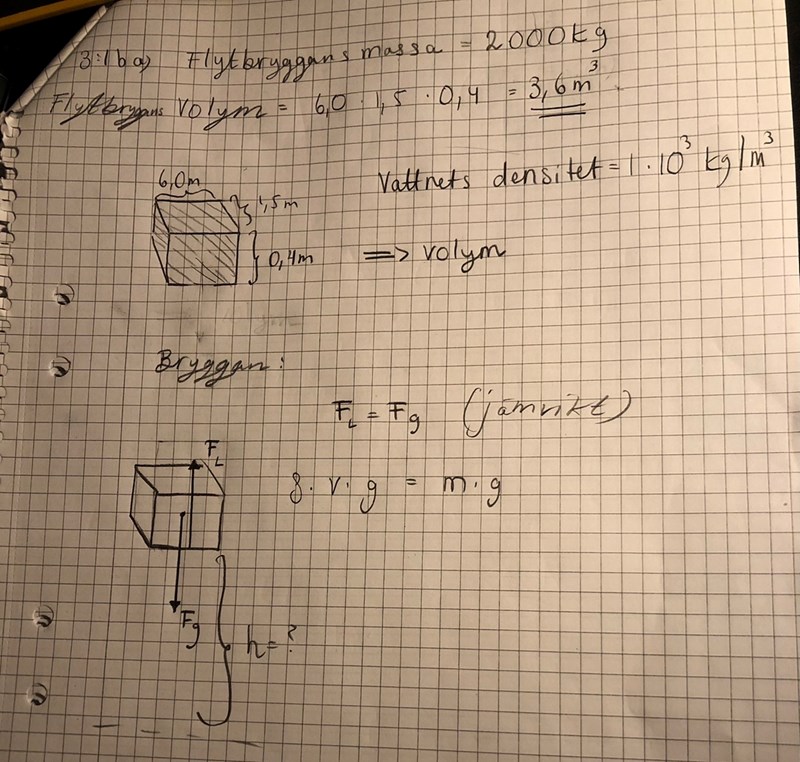 3:16 a) Flytbryggans massa = 2000kg
Flytbryggans Volym = 6,0 · 1,5 · 0,4 = 3,6m³
Vattnets densitet = 1 · 10³ kg/m³
6,0m
1,5m
0,4m => volym
Bryggan:
F_L = F_g (jämvikt)
F_L
ρ · v · g = m · g
F_g
h = ?